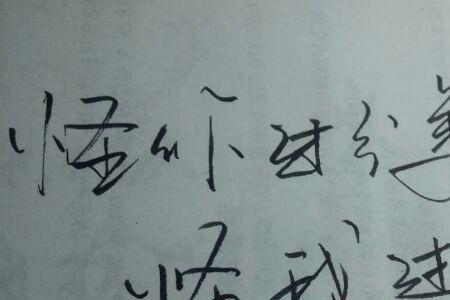 怪你过分美
怪我过